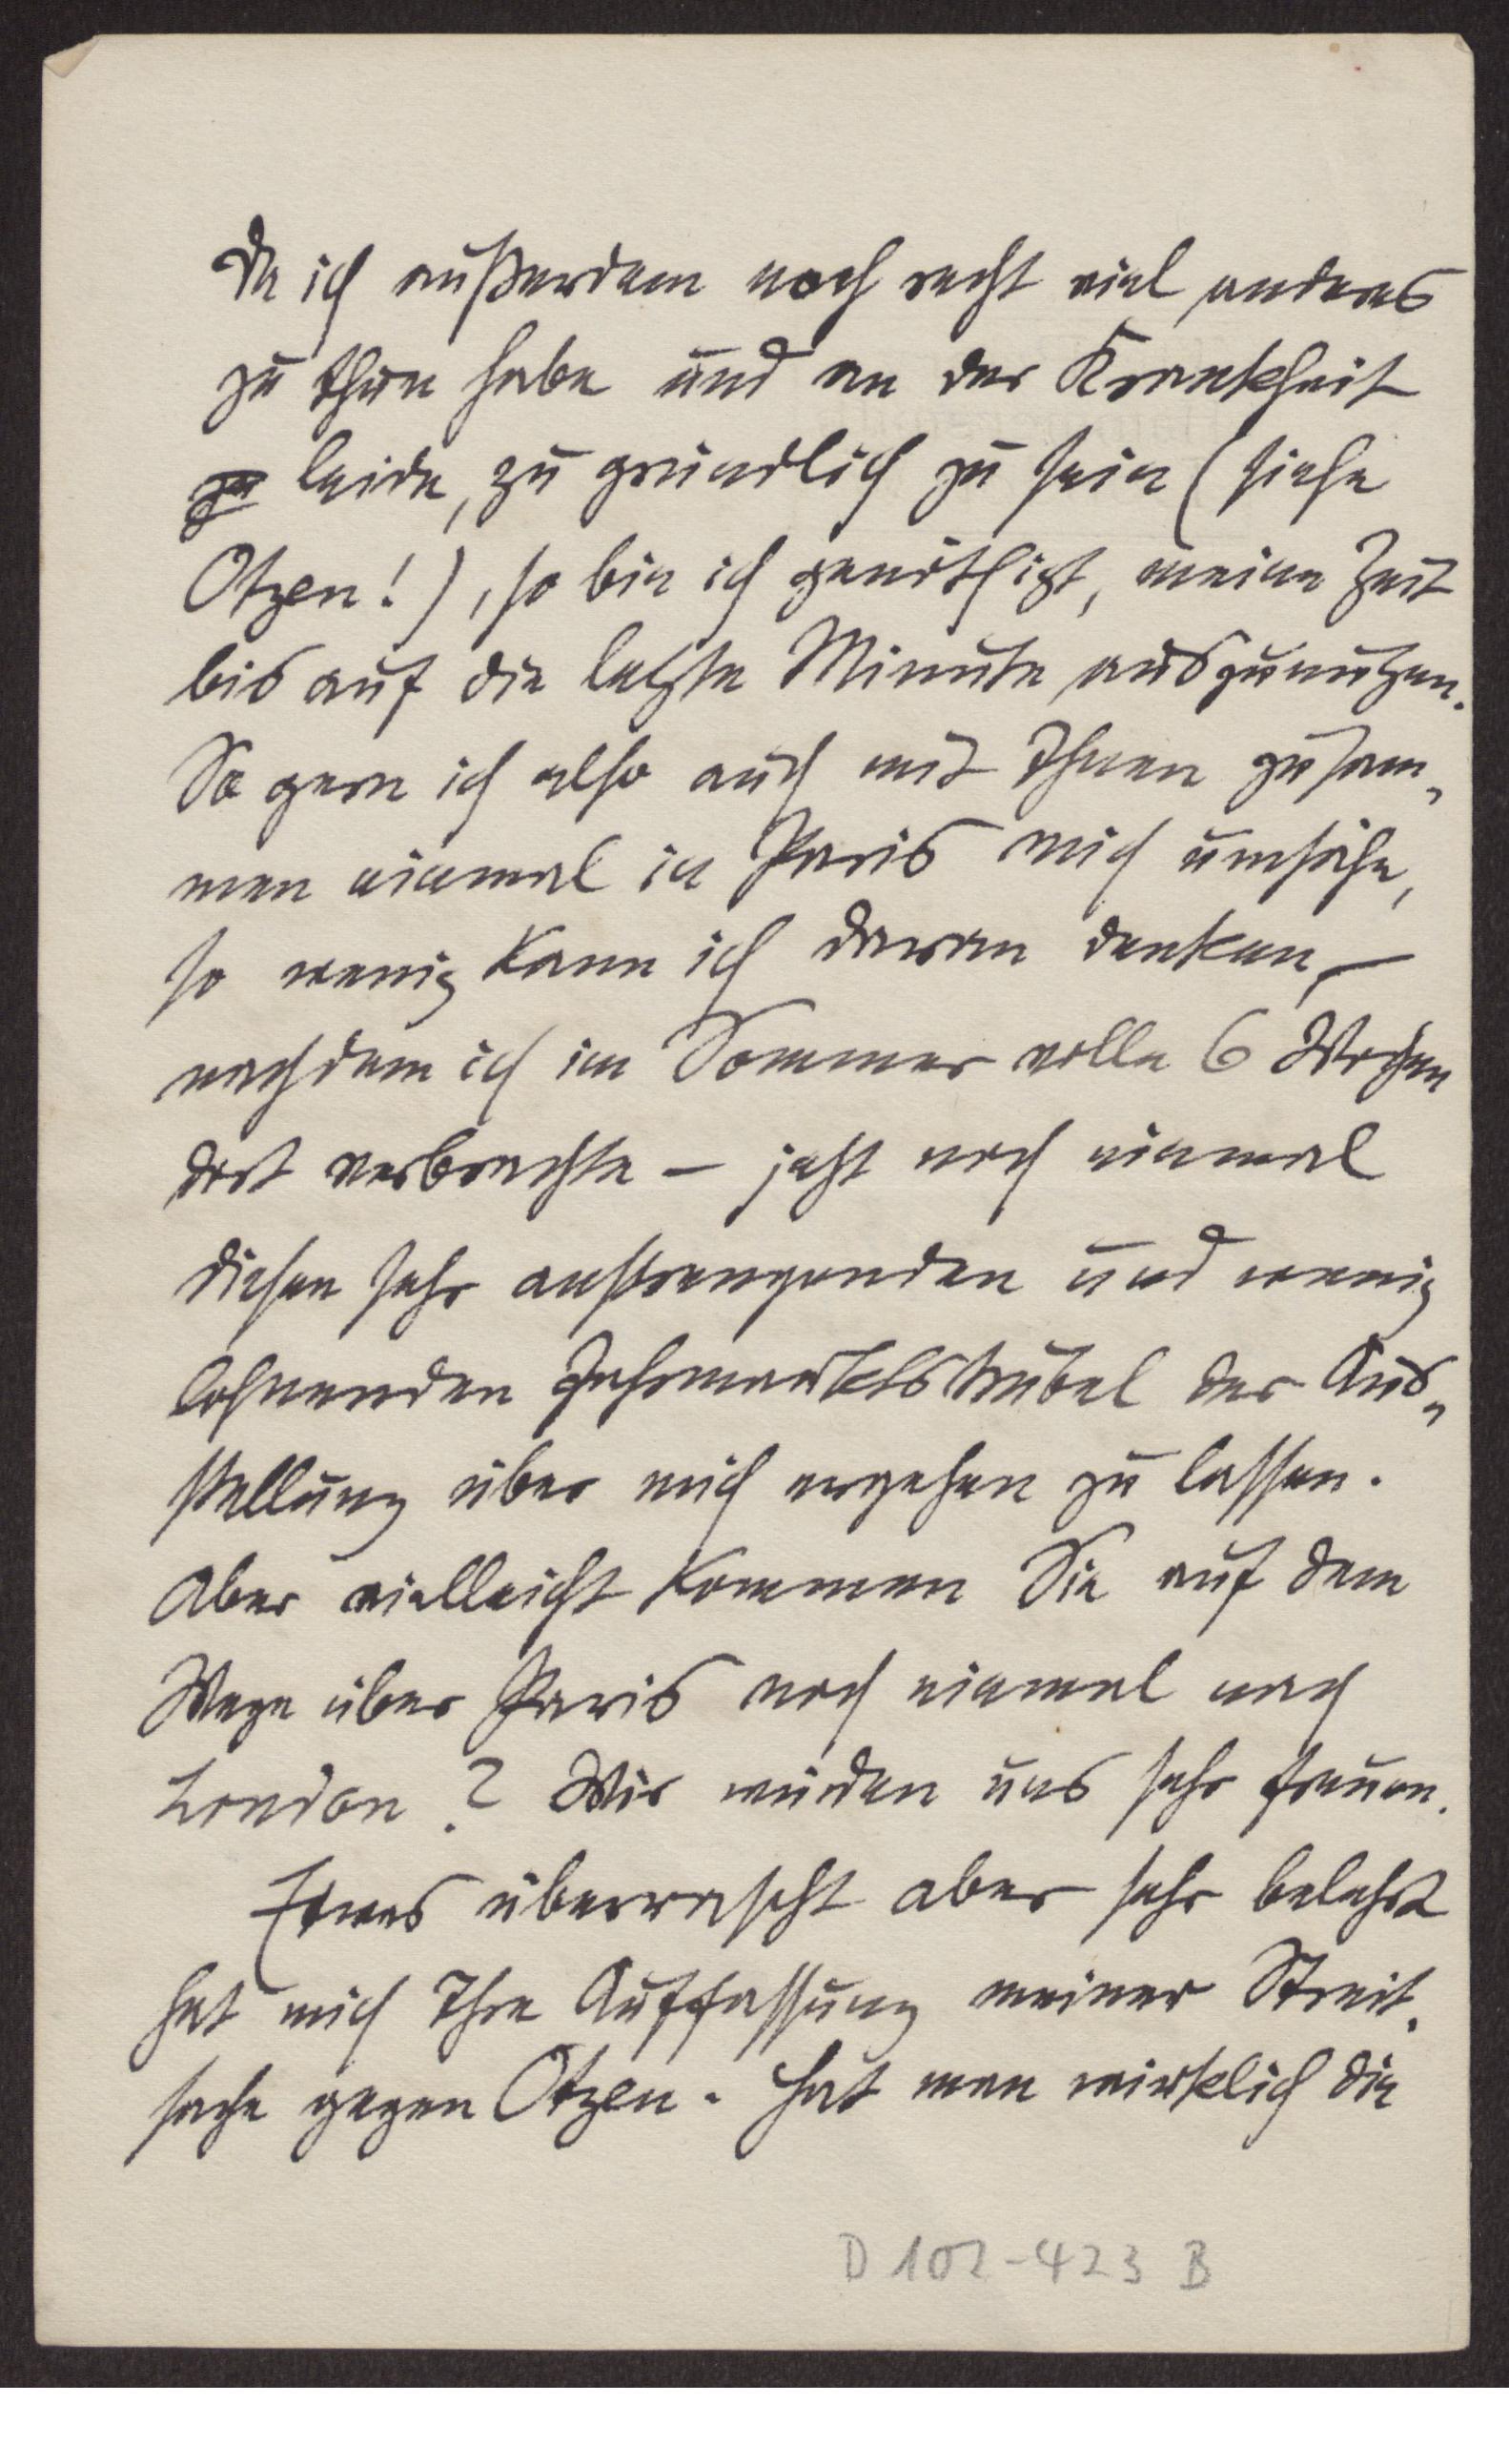 Da ich außerdem noch recht viel anderes
zu thun habe und an der Krankheit
zu leide, zu gründlich zu sein (siehe
Otzen!), so bin ich genöthigt, meine Zeit
bis auf die letzte Minute auszunutzen.
So gern ich also auch mit Ihnen zusam„
men einmal in Paris mich umsähe,
so wenig kann ich daran denken, –
nachdem ich im Sommer volle 6 Wochen
dort verbrachte – jetzt noch einmal
diesen sehr anstrengenden und wenig
lohnenden Jahrmarktstrubel der Aus„
stellung über mich ergehen zu lassen.
Aber vielleicht kommen Sie auf dem
Wege über Paris noch einmal nach
London? Wir würden uns sehr freuen.
Etwas überrascht aber sehr belehrt
hat mich Ihre Auffassung meiner Streit„
sache gegen Otzen. Hat man wirklich die
D 102-423 B